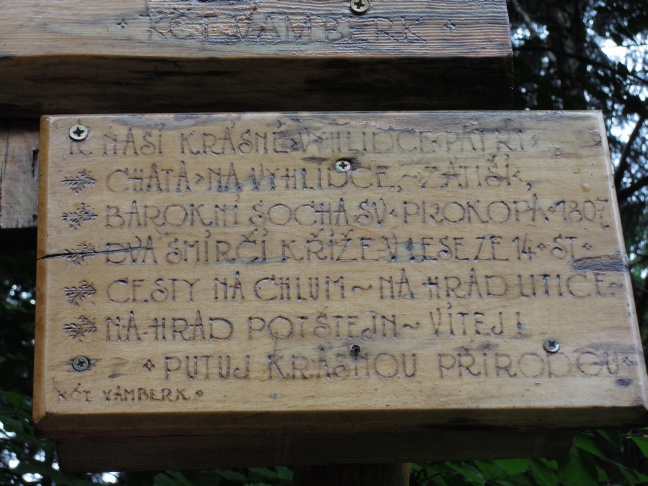 KČT VAMBERK
K NAŠÍ KRÁSNÉ VYHLÍDCE PATŘÍ
CHATA NA VYHLÍDCE, ~ ZÁTIŠÍ,
BAROKNÍ SOCHA SV. PROKOPA 1807
DVA SMÍRČÍ KŘÍŽE V LESE ZE 14 ST
CESTY NA CHLUM ~ NA HRAD LITICE ~
NA HRAD POTŠTEJN ~ VÍTEJ!
PUTUJ KRÁSNOU PŘÍRODOU
KČT VAMBERK